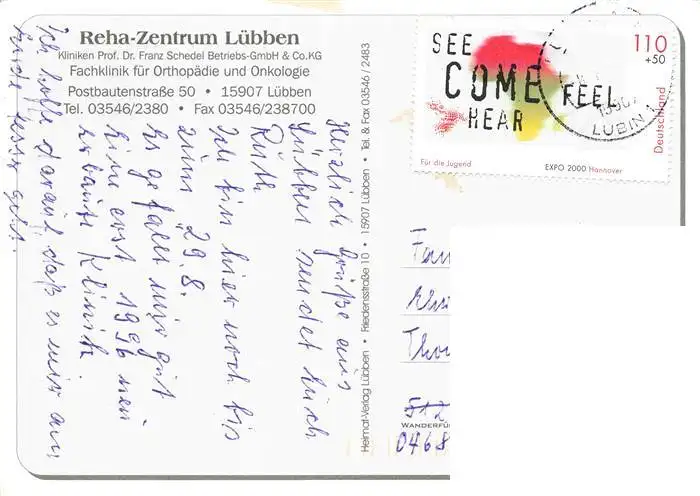 Reha-Zentrum Lübben
Kliniken Prof. Dr. Franz Schedel Betriebs-GmbH & Co.KG
Fachklinik für Orthopädie und Onkologie
Postbautenstraße 50 • 15907 Lübben
Tel. 03546/2380 • Fax 03546/238700
Herzlich Grüße aus
Lübben sendet Euch
Ruth
Ich bin hier noch bis
zum 29.8.
Es gefällt mir gut
Eine erst 1996 neu
erbaute Klinik.
Ich hoffe darauf, daß es mir am
Ende besser geht.
Heimat-Verlag Lübben • Friedensstraße 10 • 15907 Lübben • Tel. & Fax 03546 / 2483
SEE
COME
FEEL
HEAR
110
+50
Deutschland
Für die Jugend
EXPO 2000 Hannover
LÜBBEN
Fam
Tho
512
WANDERFÜ
0468